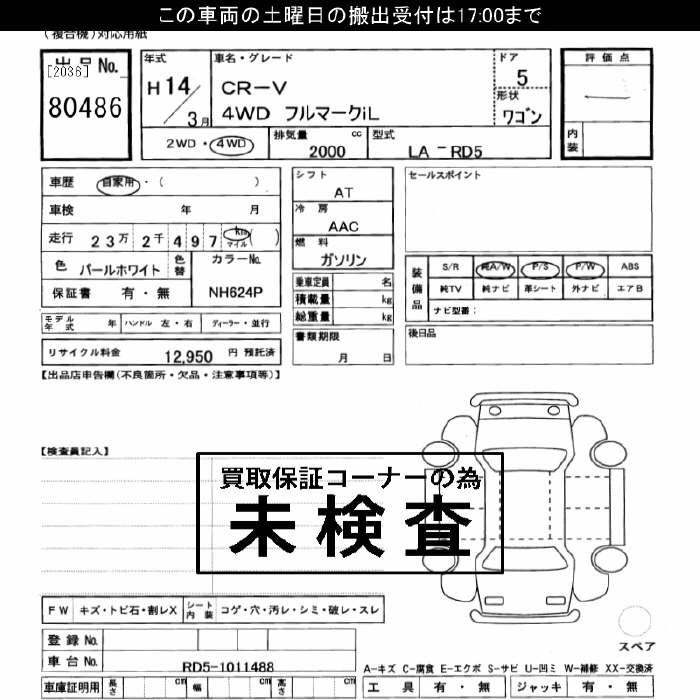 この車両の土曜日の搬出受付は17:00まで
(複合機)対応用紙
出品No.
[2036]
80486
年式
H 14/3月
車名・グレード
CR-V
4WD フルマークiL
ドア
5
形状
ワゴン
評価点
内装
2WD・4WD
排気量 cc
2000
型式
LA - RD5
車歴 自家用・( )
車検 年 月
走行 23万2千497 km マイル ( )
色 パールホワイト
色替
カラーNo.
NH624P
保証書 有・無
モデル年式 年 ハンドル 左・右 ディーラー・並行
リサイクル料金 12,950 円 預託済
シフト
AT
冷房
AAC
燃料
ガソリン
乗車定員 名
積載量 kg
総重量 kg
書類期限
月 日
セールスポイント
装備品
S/R 純A/W P/S P/W ABS
純TV 純ナビ 革シート 外ナビ エアB
ナビ型番:
後日品
【出品店申告欄(不良箇所・欠品・注意事項等)】
【検査員記入】
買取保証コーナーの為
未検査
FW キズ・トビ石・割レX シート内装 コゲ・穴・汚レ・シミ・破レ・スレ
登録No.
車台No. RD5-1011488
車庫証明用 長さ cm 幅 cm 高さ cm
スペア
A-キズ C-腐食 E-エクボ S-サビ U-凹ミ W-補修 XX-交換済
工具 有・無 ジャッキ 有・無